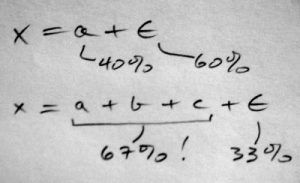 x = a + ϵ
40% 60%
x = a + b + c + ϵ
67% ! 33%